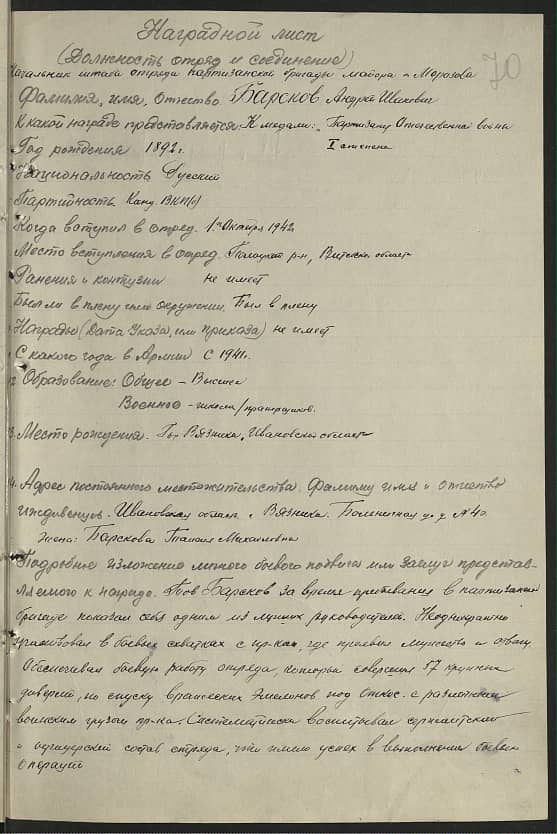 Наградной лист
70
(Должность отряд и соединение)
Начальник штаба отряда партизанской бригады майора Морозова
Фамилия, имя, отчество Барсков Андрей
К какой награде представляется: К медали: Партизану Отечественной войны
I степени
Год рождения 1892 г.
Национальность Русский
Партийность Канд ВКП(б)
Когда вступил в отряд. 1го Октября 1942
Место вступления в отряд. Полоцкий р-н, Витебск. область
Ранения и контузии не имеет
Был ли в плену или окружении. Был в плену
Награды (Дата Указа, или приказа) не имеет
С какого года в Армии с 1941г.
12 Образование: Общее – Высшее
Военное – школа прапорщиков.
13. Место рождения. Гор Вязники, Ивановская область
14. Адрес постоянного местожительства. Фамилию имя и отчество
иждивенцев. Ивановская область г. Вязники. д. № 40
жена: Барскова Таисия Михайловна
Подробное изложение личного боевого подвига или заслуг представ-
ляемого к награде. Тов Барсков за время пребывания в партизанской
бригаде показал себя одним из лучших руководителей. Неоднократно
участвовал в боевых схватках с пр-ком, где проявил мужество и отвагу.
Обеспечивал боевую работу отряда, который совершил 57 крупных
диверсий, по спуску вражеских эшелонов под откос. с различным
воинским грузом пр-ка. Систематически воспитывал сержантский
и офицерский состав отряда, чем имел успех в выполнении боевых
операций